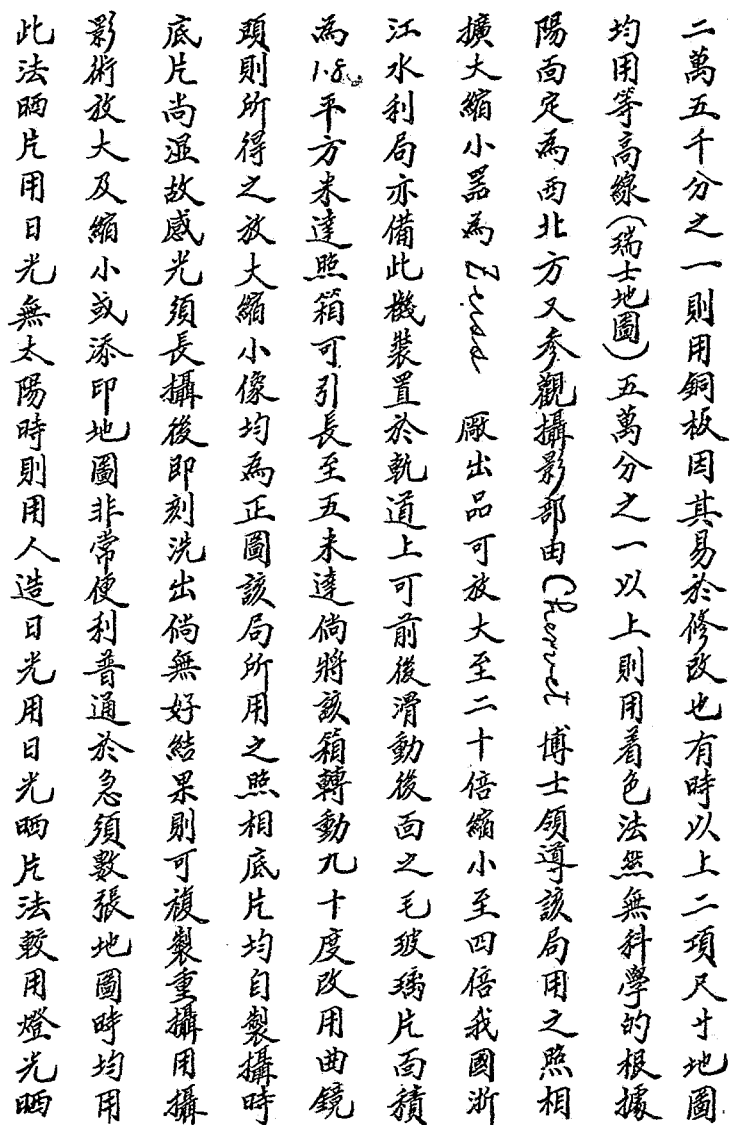 二萬五千分之一則用銅板因其易於修改也有時以上二項尺寸地圖
均用等高線(瑞士地圖)五萬分之一以上則用着色法然無科學的根據
陽面定為西北方又參觀攝影部由 博士領導該局用之照相
擴大縮小器為 Zeiss 厰出品可放大至二十倍縮小至四倍我國浙
江水利局亦備此機裝置於軌道上可前後滑動後面之毛玻璃片面積
為1.8平方米達照箱可引長至五米達倘將該箱轉動九十度改用曲鏡
頭則所得之放大縮小像均為正圖該局所用之照相底片均自製攝時
底片尚溼故感光須長攝後即刻洗出倘無好結果則可複製重攝用攝
影術放大及縮小或添印地圖非常便利普通於急須數張地圖時均用
此法晒片用日光無太陽時則用人造日光用日光晒片法較用燈光晒